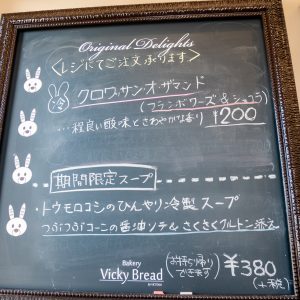 Original Delights
〈レジにてご注文承ります〉
冷 クロワッサンオザマンド
(フランボワーズ&ショコラ)
…程良い酸味とさわやかな香り ¥200
期間限定スープ
・トウモロコシのひんやり冷製スープ
つぶつぶコーンの醤油ソテー&さくさくクルトン添え
Bakery
Vicky Bread
(お持ち帰りできます) ¥380
(+税)